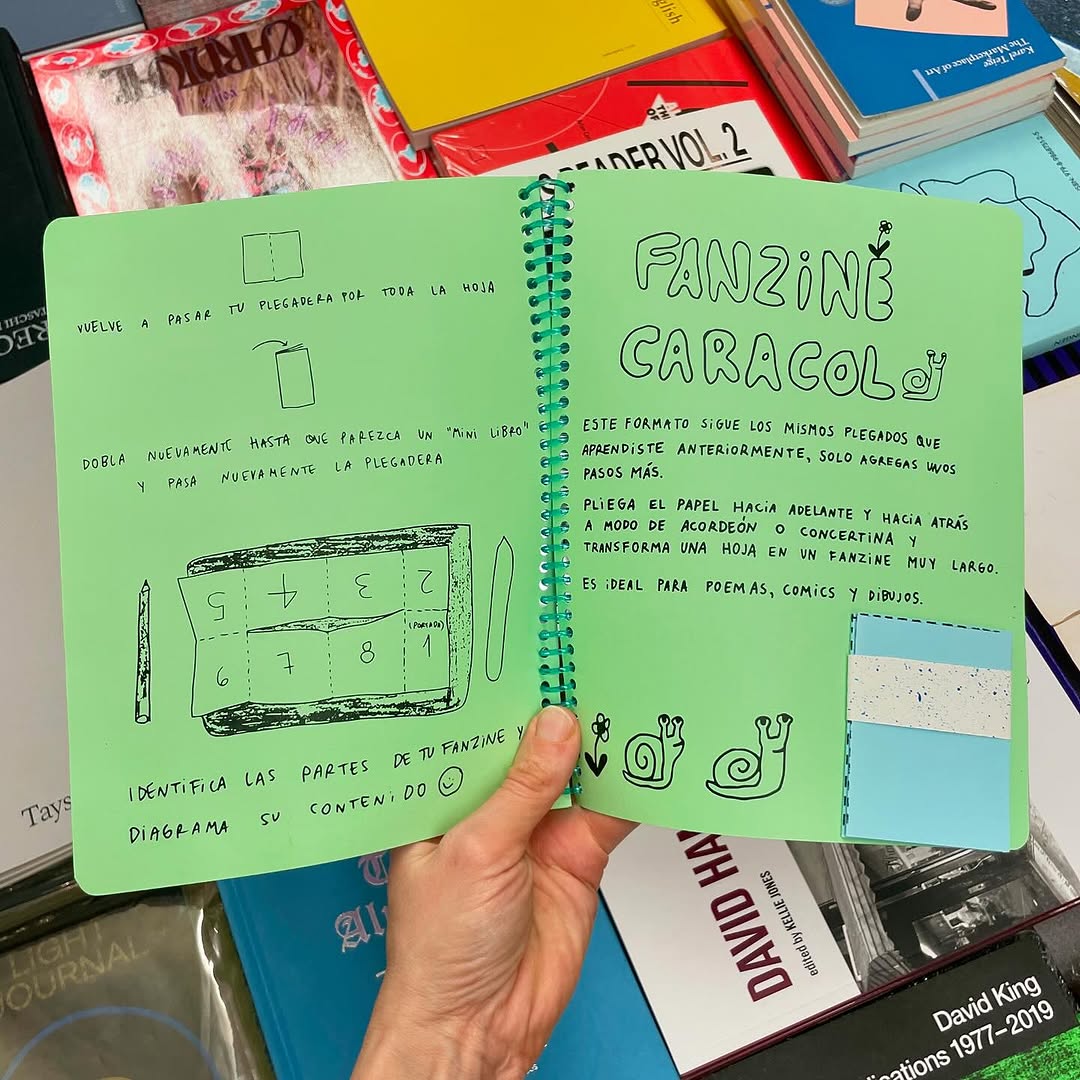 VUELVE A PASAR TU PLEGADERA POR TODA LA HOJA
DOBLA NUEVAMENTE HASTA QUE PAREZCA UN "MINI LIBRO"
Y PASA NUEVAMENTE LA PLEGADERA
5 4 3 2
(PORTADA)
6 7 8 1
IDENTIFICA LAS PARTES DE TU FANZINE Y
DIAGRAMA SU CONTENIDO
FANZiNE
CARACOL
ESTE FORMATO SIGUE LOS MISMOS PLEGADOS QUE
APRENDISTE ANTERIORMENTE, SOLO AGREGAS UNOS
PASOS MÁS.
PLIEGA EL PAPEL HACIA ADELANTE Y HACIA ATRÁS
A MODO DE ACORDEÓN O CONCERTINA Y
TRANSFORMA UNA HOJA EN UN FANZINE MUY LARGO.
ES IDEAL PARA POEMAS, COMICS Y DIBUJOS.
glish
Karel Teige
The Marketplace of Art
READER VOL. 2
Tays
LIGHT
JOURNAL
DAVID HA
edited by KELLIE JONES
David King
1977–2019